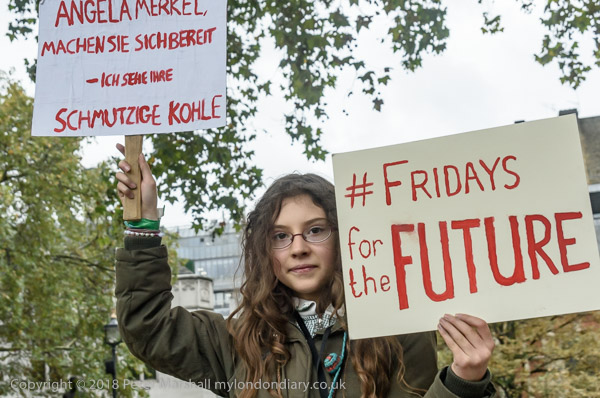 ANGELA MERKEL,
MACHEN SIE SICH BEREIT
– ICH SEHE IHRE
SCHMUTZIGE KOHLE
# FRIDAYS
for the FUTURE
Copyright © 2018 Peter Marshall mylondondiary.co.uk